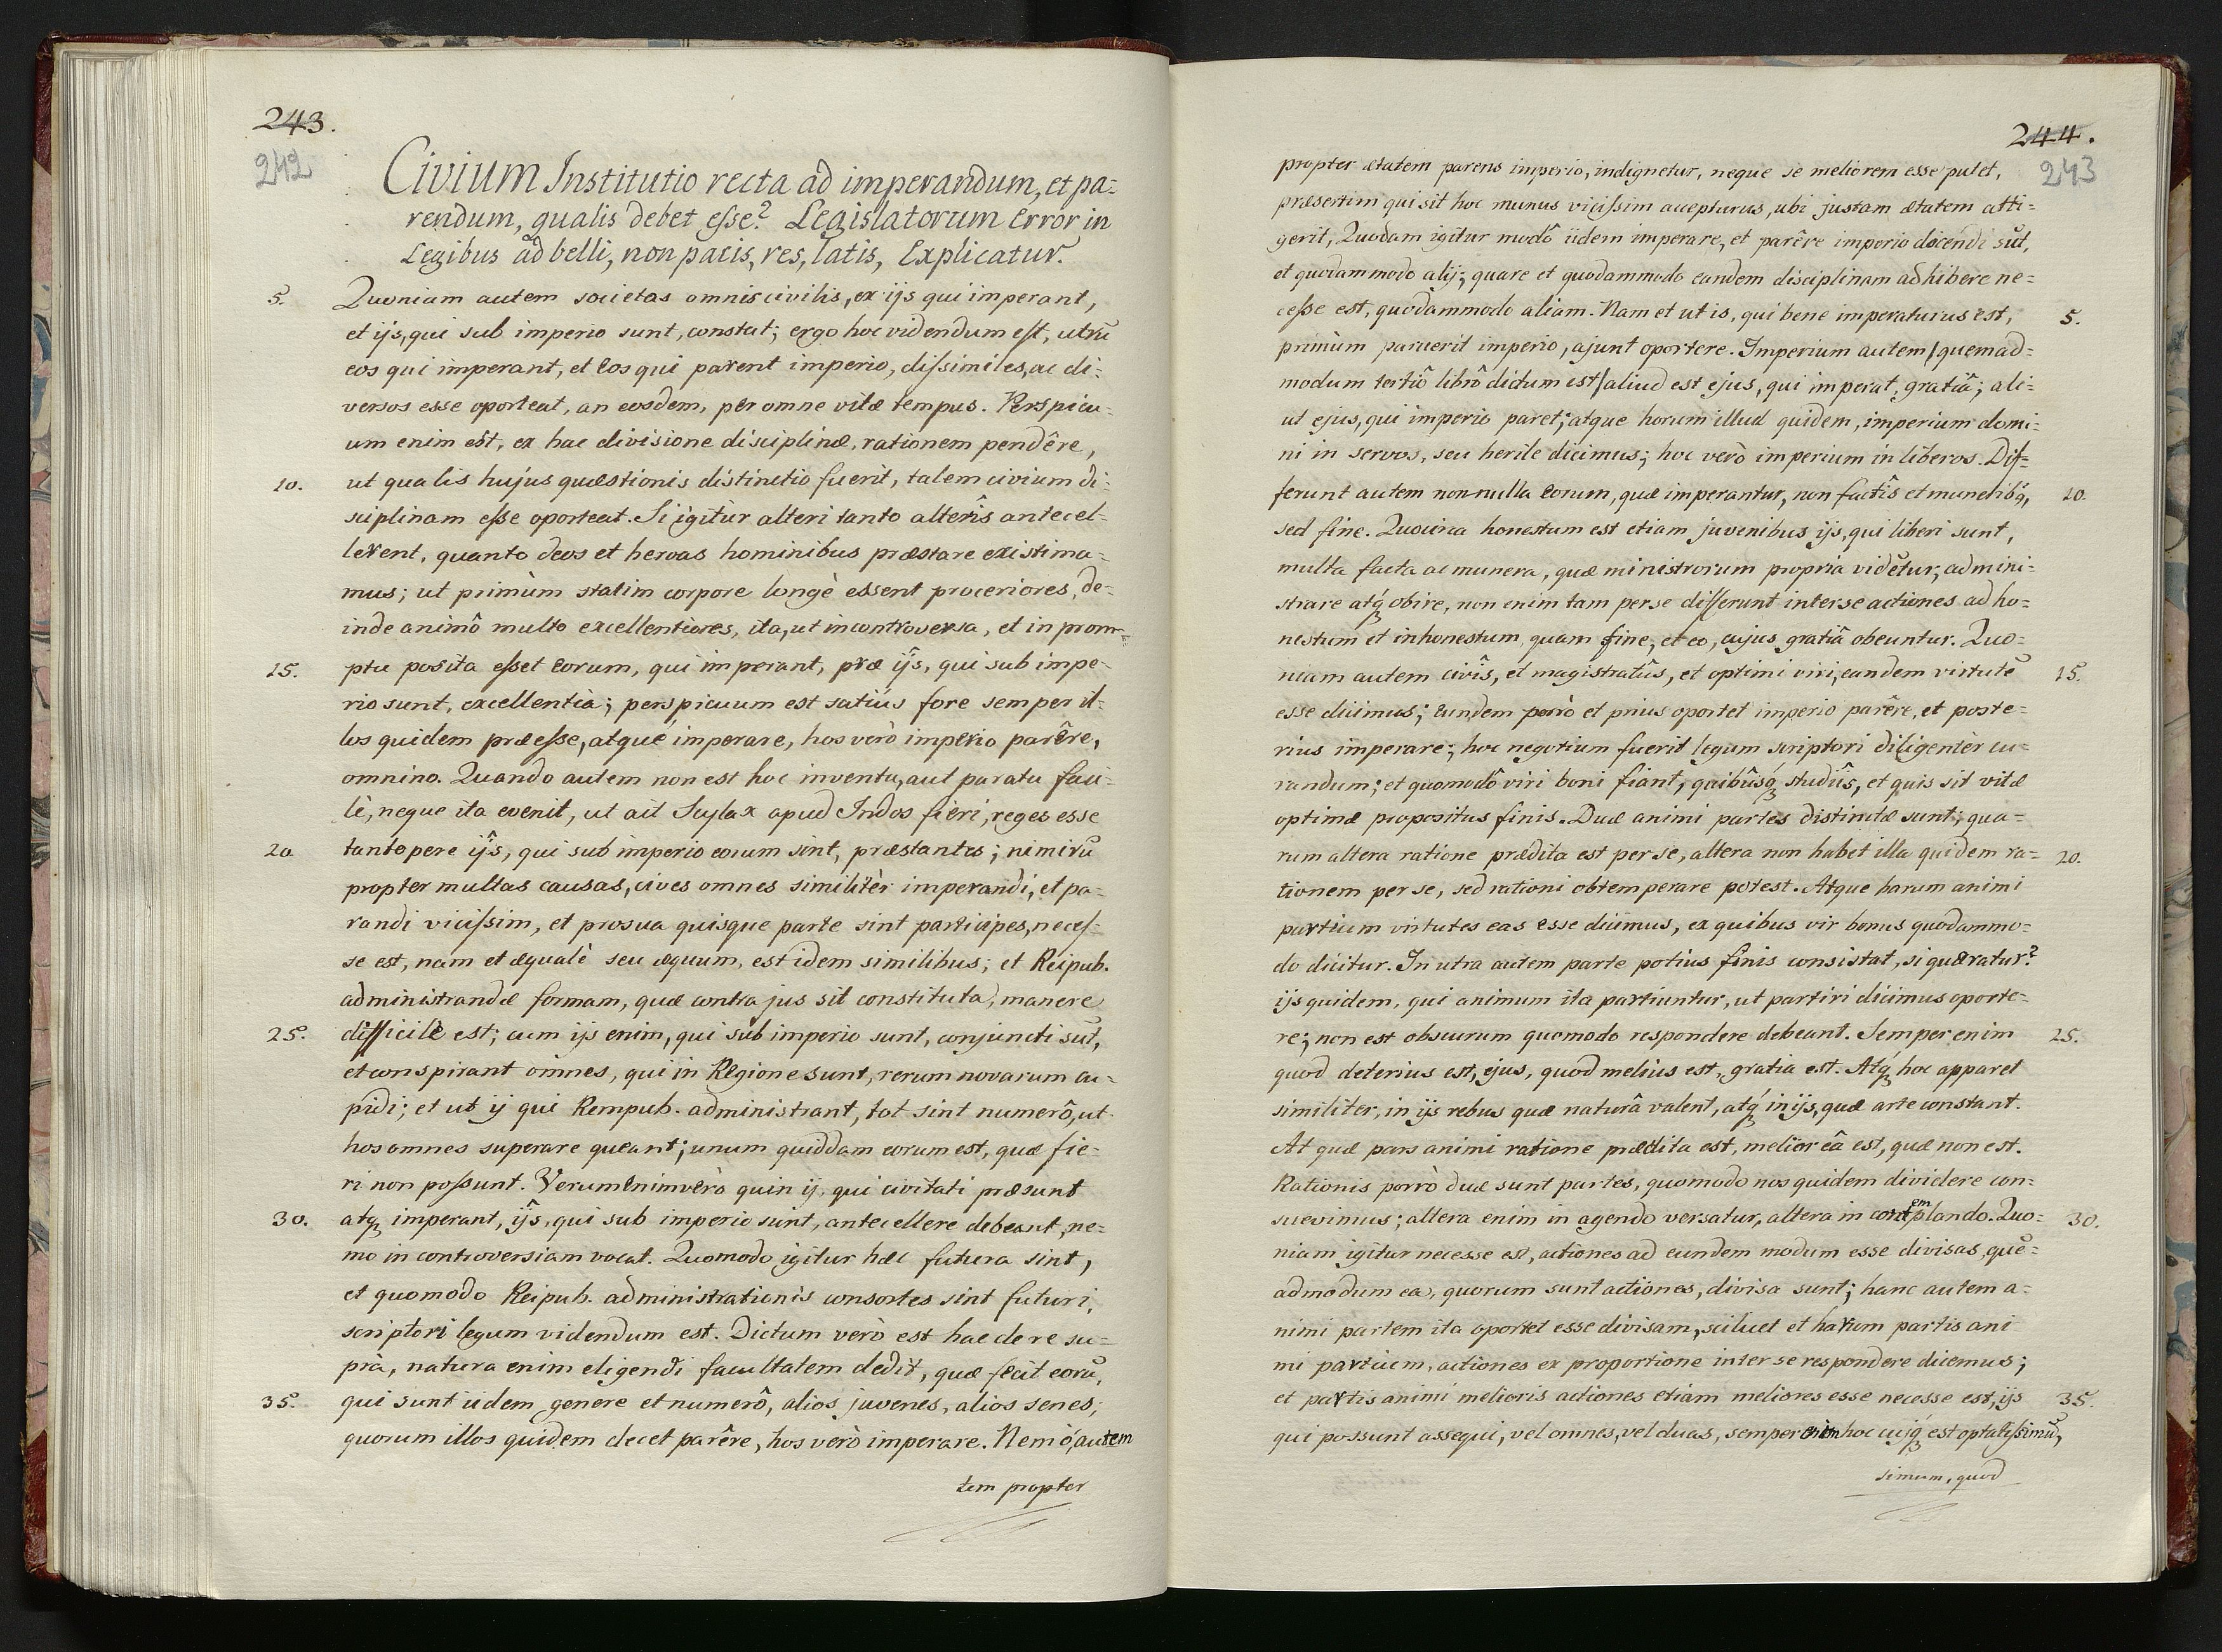 243.
242
Civium Institutio recta ad imperandum, et pa-
rendum, qualis debet esse? Legislatorum Error in
Legibus ad belli, non pacis, res, latis, Explicatur.
5. Quoniam autem societas omnis civilis, ex ijs qui imperant,
et ijs, qui sub imperio sunt, constat; ergo hoc videndum est, utrū
eos qui imperant, et Eos qui parent imperio, dissimiles, ac di-
versos esse oporteat, an eosdem, per omne vitæ tempus. Perspicu-
um enim est, ex hac divisione disciplinæ, rationem pendêre,
10. ut qualis hujus quæstionis distinctio fuerit, talem civium di-
sciplinam esse oporteat. Si igitur alteri tanto alterîs antecel-
lerent, quanto deos et heroas hominibus præstare existima-
mus; ut primùm statim corpore longè essent proceriores, de-
inde animô multo excellentiores, ita, ut incontroversa, et in prom-
15. ptu posita esset Eorum, qui imperant, præ ijŝ, qui sub impe-
rio sunt, excellentia; perspicuum est satiús fore semper il-
los quidem præesse, atque imperare, hos verò imperio parêre,
omnino. Quando autem non est hoc inventu, aut paratu faci-
lè, neque ita evenit, ut ait Scylax apud Indos fieri, reges esse
20 tantopere ijŝ, qui sub imperio eorum sint, præstantes; nimirū
propter multas causas, cives omnes similitèr imperandi, et pa-
randi vicissim, et pro sua quisque parte sint participes, neces-
se est, nam et æqualè seu æquum, est idem similibus; et Reipub.
administrandæ formam, quæ contra jus sit constituta, manere
25. difficilè est; cum ijs enim, qui sub imperio sunt, conjuncti sūt,
et conspirant omnes, qui in Regione sunt, rerum novarum cu-
pidi; et ut ij qui Rempub. administrant, tot sint numerô, ut
hos omnes superare queant; unum quiddam eorum est, quæ fie-
ri non possunt. Verum Enimvèro quin ij, qui civitati præsunt
30. atq́ȝ imperant, ijŝ, qui sub imperio sunt, antecellere debeant, ne-
mo in controversiam vocat. Quomodo igitur hæc futura sint,
et quomodo Reipub. administrationis consortes sint futuri,
scriptori legum videndum est. Dictum verò est hac de re su-
prà, natura enim eligendi facultatem dedit, quæ fecit eorū,
35. qui sunt iidem genere et numerô, alios juvenes, alios senes;
quorum illos quidem decet parêre, hos verò imperare. Nemò, autem
tem propter
244.
243
propter ætatem parens imperio, indignetur, neque se meliorem esse putet,
præsertim qui sit hoc munus vicissim accepturus, ubi justam ætatem atti-
gerit, Quodam igitur modô iidem imperare, et parêre imperio docéndi sūt,
et quodammodo alij; quare et quodammodo eandem disciplinam adhibere ne-
cesse est, quodammodo aliam. Nam et ut is, qui bene imperaturus est, 5.
primùm paruerit imperio, ajunt oportere. Imperium autem / quemad-
modum tertiô librô dictum est / aliud est ejus, qui imperat, gratiâ; ali-
ut ejus, qui imperio paret; atque horum illud quidem, imperium domi-
ni in servos, seu herile dicimus; hoc verò imperium in liberos. Dif-
ferunt autem nonnulla Eorum, quæ imperantur, non factîs et muneribq́, 10.
sed fine. Quocirca honestum est etiam juvenibus ijs, qui liberi sunt,
multa facta ac munera, quæ ministrorum propria vidētur, admini-
strare atq́ȝ obire, non enim tam per se differunt inter se actiones ad ho-
nestum et inhonestum, quam fine, et eo, cujus gratiâ obeuntur. Quo-
niam autem civîs, et magistratûs, et optimi viri, eandem virtutē 15.
esse dicimus; Eundem porrò et prius oportet imperio parêre, et poste-
rius imperare; hoc negotium fuerit legum scriptori diligentèr cu-
randum; et quomodô viri boni fiant, quibûsq́ȝ studiîs, et quis sit vitæ
optimæ propositus finis. Duæ animi partes distinctæ sunt; qua-
rum altera ratione prædita est per se, altera non habet illa quidem ra- 20.
tionem per se, sed rationi obtemperare potest. Atque harum animi
partium virtutes eas esse dicimus, ex quibus vir bonus quodammo-
do dicitur. In utra autem parte potius finis consistat, si quæratur?
ijs quidem, qui animum ita partiuntur, ut partiri dicimus oporte-
re; non est obscurum quomodo respondere debeant. Semper enim 25.
quod deterius est, ejus, quod melius est, gratia est. Atq́ȝ hoc apparet
similiter, in ijs rebus quæ naturâ valent, atq́ȝ in ijs, quæ arte constant.
At quæ pars animi ratione prædita est, melior eâ est, quæ non est.
Rationis porrò duæ sunt partes, quomodo nos quidem dividere con-
suevimus; altera enim in agendo versatur, altera in contemplando. Quo- 30.
niam igitur necesse est, actiones ad eundem modum esse divisas, quē-
admodum ea, quorum sunt actiones, divisa sunt; hanc autem a-
nimi partem ita oportet esse divisam, scilicet et harum partis ani
mi partium, actiones ex proportione inter se respondere dicemus;
et partis animi melioris actiones etiam meliores esse necesse est, ijs 35.
qui possunt assequi, vel omnes, vel duas, semper enim hoc cuiq́ȝ est optatissimū,
simum, quod